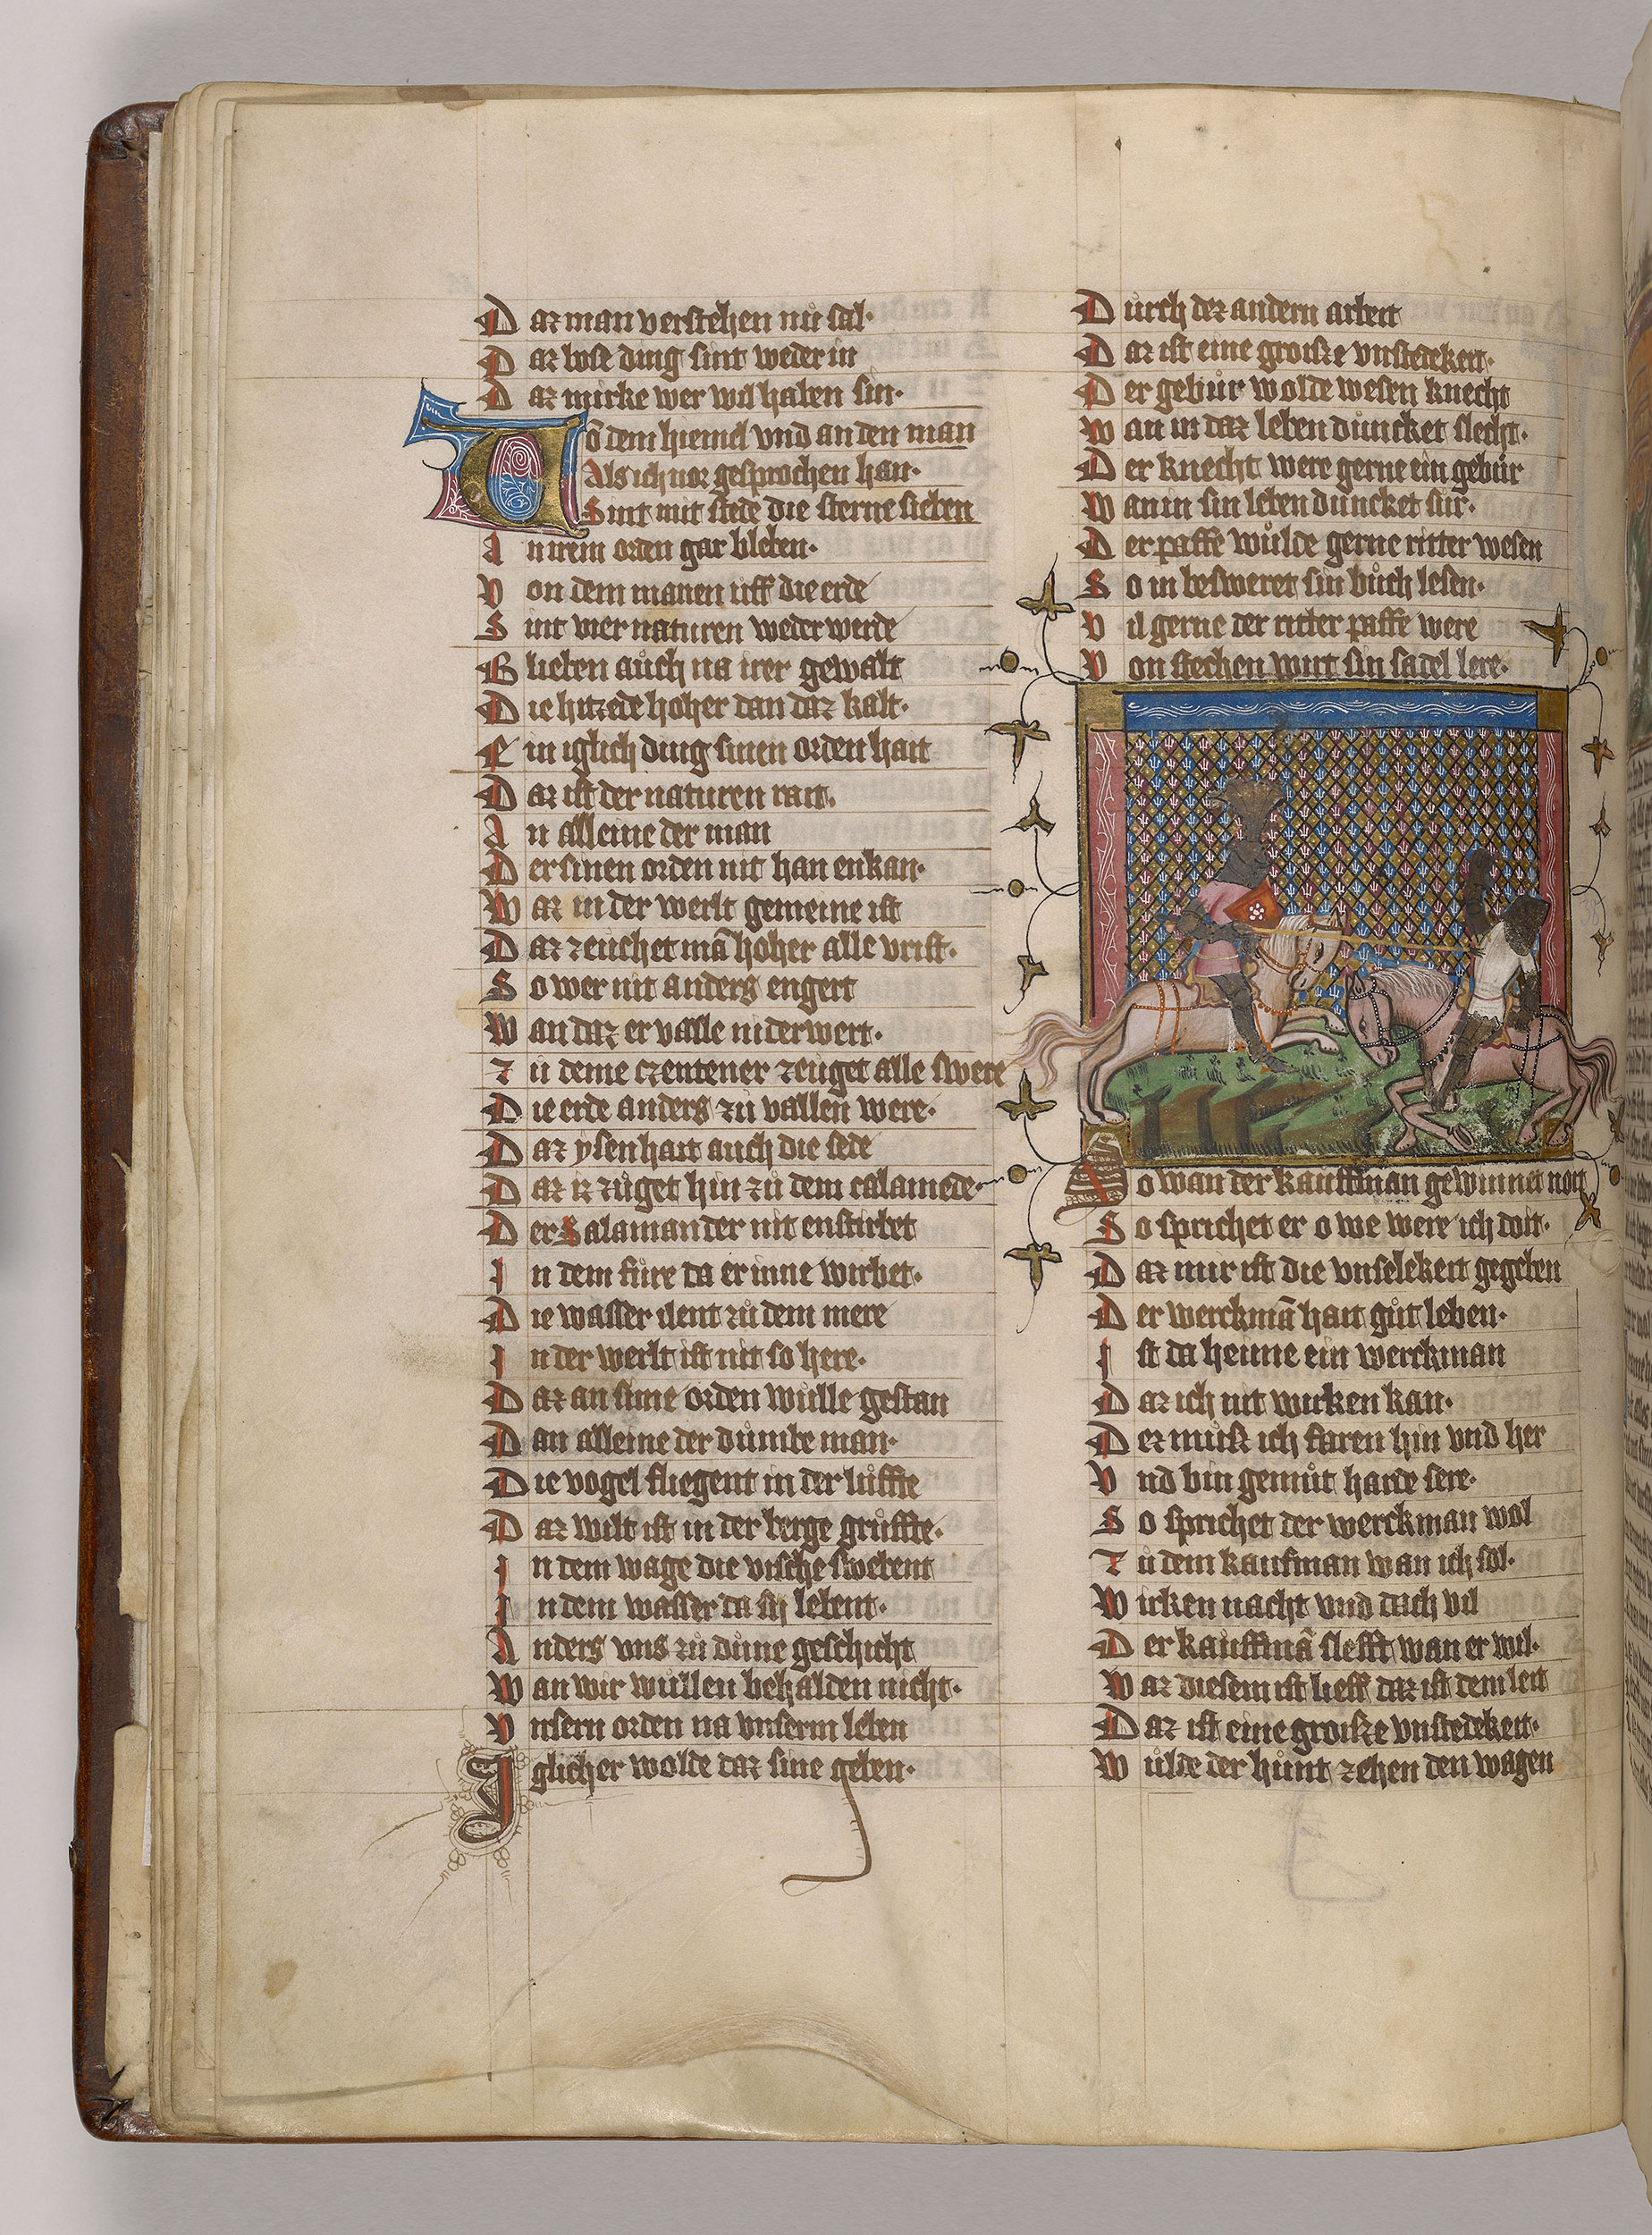 Daz man verstehen nů sal·
Daz bose ding sint weder in
Daz mirke wer wil haben sin·
Võ dem hiemel vnd an den man
Als ich uor gesprochen han·
Sint mit stede die sterne sieben
An irem orden gar bleben·
Von dem manen uff die erde
Sint vier naturen weder werde
Blieben aůch na irer gewalt
Die hitzede hoher dan daz kalt·
Ein iglich ding sinen orden hait
Daz ist der naturen rait·
An alleine der man
Der sinen orden nit han enkan·
Waz in der werlt gemeine ist
Daz zeuchet mã hoher alle vrist·
So wer nit anders engert
Wan daz er valle niderwert·
Zu deme czentener zeuget alle swere
Die erde anders zů vallen were·
Daz ysen hait auch die sede
Daz iz zůget hin zů dem calamede·
Der Salamander nit enstirbet
In dem fůre da er inne wirbet·
Die wasser ilent zů dem mere
In der werlt ist nit so here·
Daz an sime orden wůlle gestan
Dan alleine der důmbe man·
Die vogel fliegent in der lůffte
Daz wilt ist in der berge grůffte·
In dem wage die vische swebent
In dem wasser da sij lebent·
Anders vns zů důne geschicht
Wan wir wůllen behalden nicht·
Vnsern orden na vnserm leben
Iglicher wolde daz sine geben·
Durch dez andern arbeit
Daz ist eine groisze vnstedekeit·
Der gebůr wolde wesen knecht
Wan in daz leben důncket slecht·
Der knecht were gerne ein gebůr
Wan in sin leben důncket sůr·
Der paffe wůlde gerne ritter wesen
So in besweret sin bůch lesen·
Vil gerne der ritter paffe were
Von stechen wirt sin sadel lere·
So wan der kauffman gewinnet noit
So sprichet er o we were ich doit·
Daz mir ist die vnselekeit gegeben
Der werckmã hait gůt leben·
Ist da heime ein werckman
Daz ich nit wirken kan·
Dez můsz ich faren hin vnd her
Vnd bin gemůt harte sere·
So sprichet der werckman wol
Zů dem kaufman wan ich sol·
Wirken nacht vnd dach vil
Der kauffmã slefft wan er wil·
Waz diesem ist lieff daz ist dem leit
Daz ist eine groisze vnstedekeit·
Wůlde der hůnt zehen den wagen